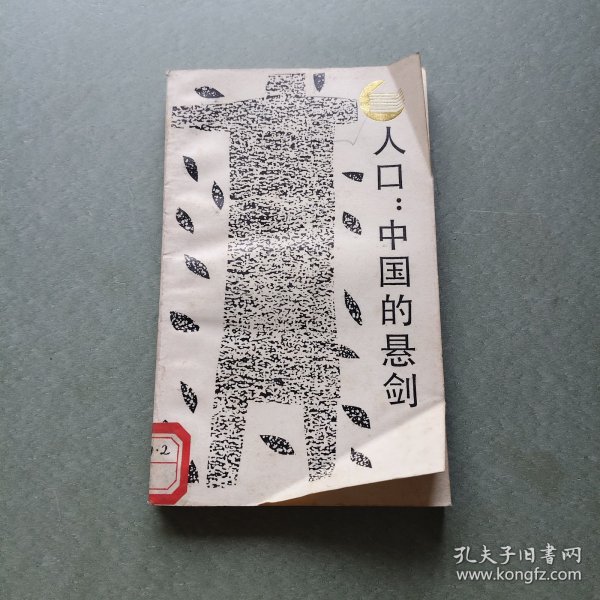 人口：中国的悬剑
·2
孔夫子旧书网
www.kongfz.com